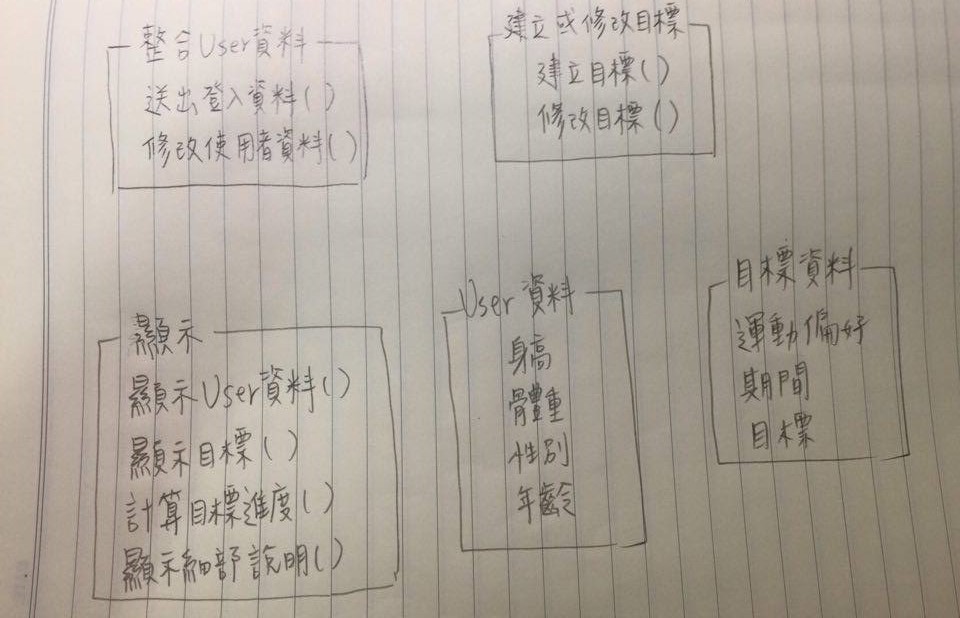 整合User資料
送出登入資料()
修改使用者資料()
建立或修改目標
建立目標()
修改目標()
顯示
顯示User資料()
顯示目標()
計算目標進度()
顯示細部說明()
User資料
身高
體重
性別
年齡
目標資料
運動偏好
期間
目標